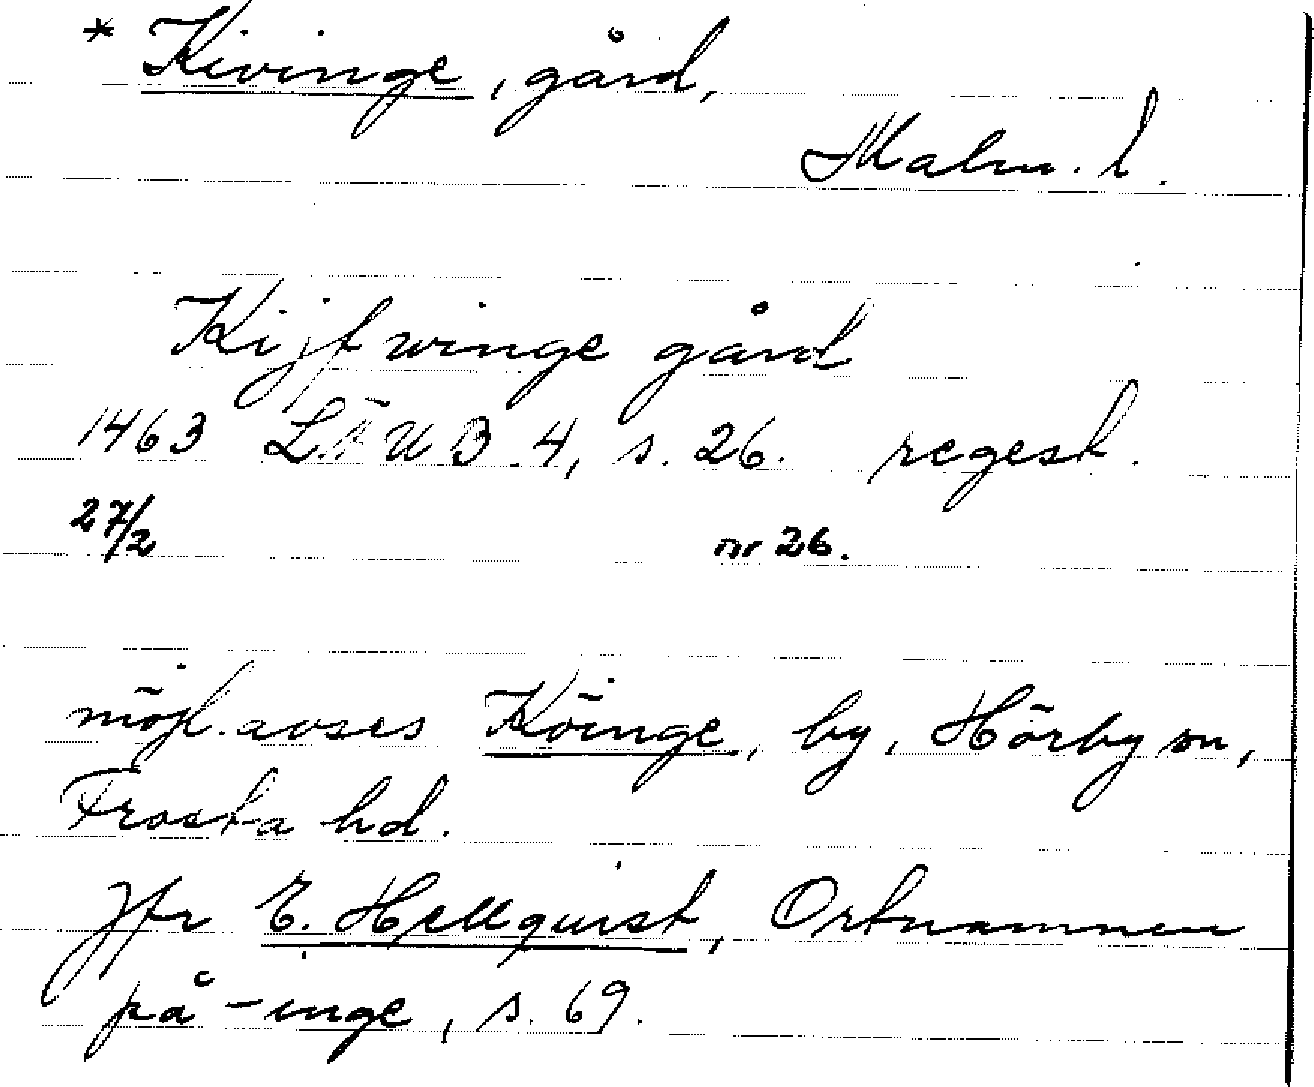 * Kivinge, gård,
Malm. l.
Kijfwinge gård
1463 LÄUB. 4, s. 26. regest.
27/2 nr 26.
möjl. avses Köinge, by, Hörby sn,
Frosta hd.
Jfr E. Hellquist, Ortnamnen
på -inge, s. 69.